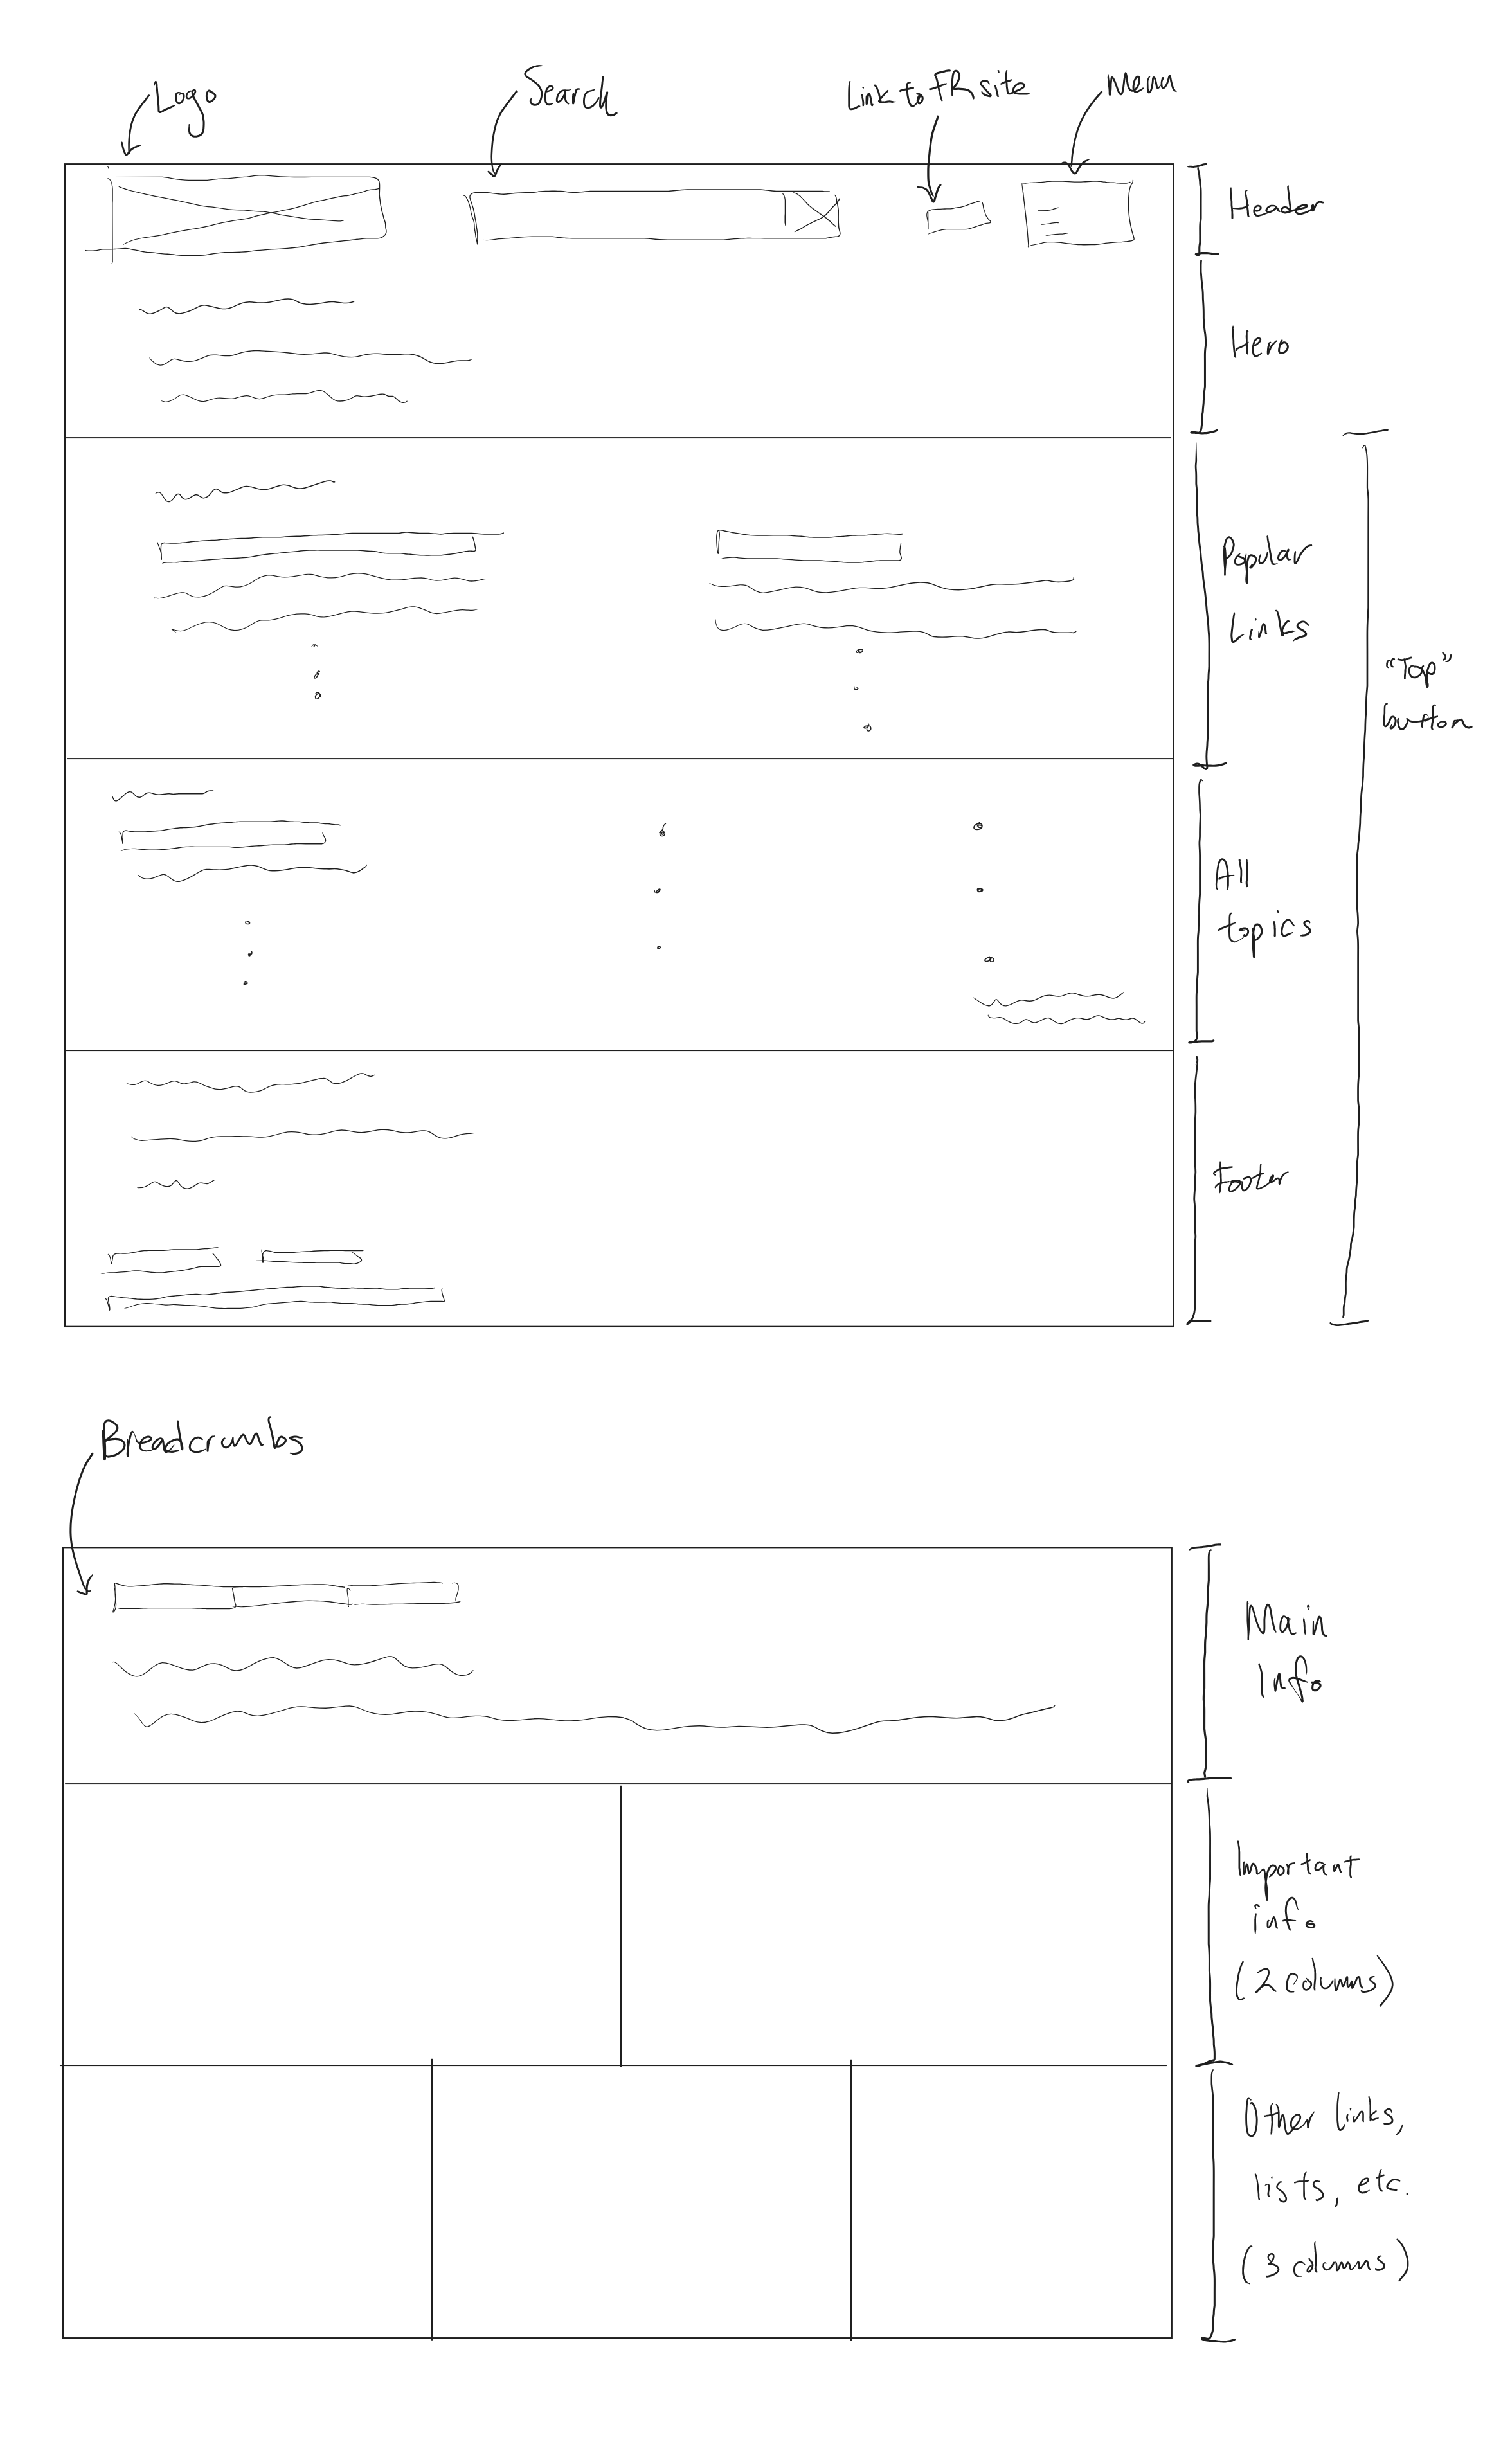 Logo
Search
Link to FR site
Menu
Header
Hero
Popular
Links
"Top"
button
All
topics
Footer
Breadcrumbs
Main
Info
Important
info
(2 columns)
Other links,
lists, etc.
(3 columns)